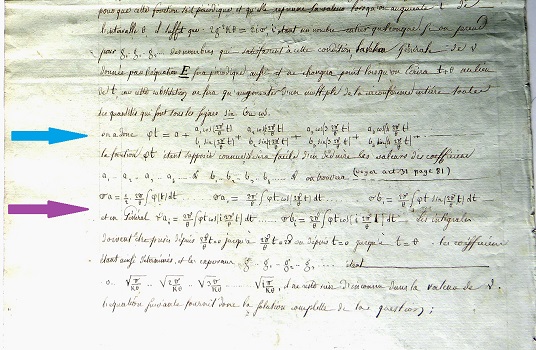 pour que cette fonction soit périodique et qu'elle reprenne sa valeur lorsqu'on augmente t de
l'intervalle θ il suffit que 2g²Kθ = 2iπ i étant un nombre entier quelconque si on prend
pour g, g₁, g₂ ... des nombres qui satisfont à cette condition la valeur générale de v
donnée par l'équation E sera périodique aussi et ne changera point lorsqu'on écrira t+θ au lieu
de t car cette substitution ne fera qu'augmenter d'un multiple de la circonférence entière toutes
les quantités qui sont sous les signes sin ou cos.
on a donc φt = a + a₁cos(2π/θ t) b₁sin(2π/θ t) + a₂cos(2 2π/θ t) b₂sin(2 2π/θ t) + a₃cos(3 2π/θ t) b₃sin(3 2π/θ t) + a₄cos(4 2π/θ t) b₄sin(4 2π/θ t) ...
la fonction φt étant supposée connue il sera facile d'en déduire les valeurs des coefficients
a, a₁, a₂ ... & b₁, b₂, b₃ ... & on trouvera (voyez art 31 page 81)
πa = ½ 2π/θ ∫φ(t)dt ... πa₁ = 2π/θ ∫φt cos(2π/θ t)dt ... πb₁ = 2π/θ ∫φt sin(2π/θ t)dt
et en général πaᵢ = 2π/θ ∫φt cos(i 2π/θ t)dt ... πbᵢ = 2π/θ ∫φt (i 2π/θ t)dt les intégrales
doivent être prises depuis 2π/θ t=0 jusqu'à 2π/θ t=2π ou depuis t=0 jusqu'à t=θ. les coefficients
étant ainsi déterminés, et les exposans g g₁ g₂ g₃ ... étant
0 √π/Kθ √2π/Kθ √3π/Kθ ... √iπ/Kθ, il ne reste rien d'inconnu dans la valeur de v.
l'équation suivante fournit donc la solution complette de la question;